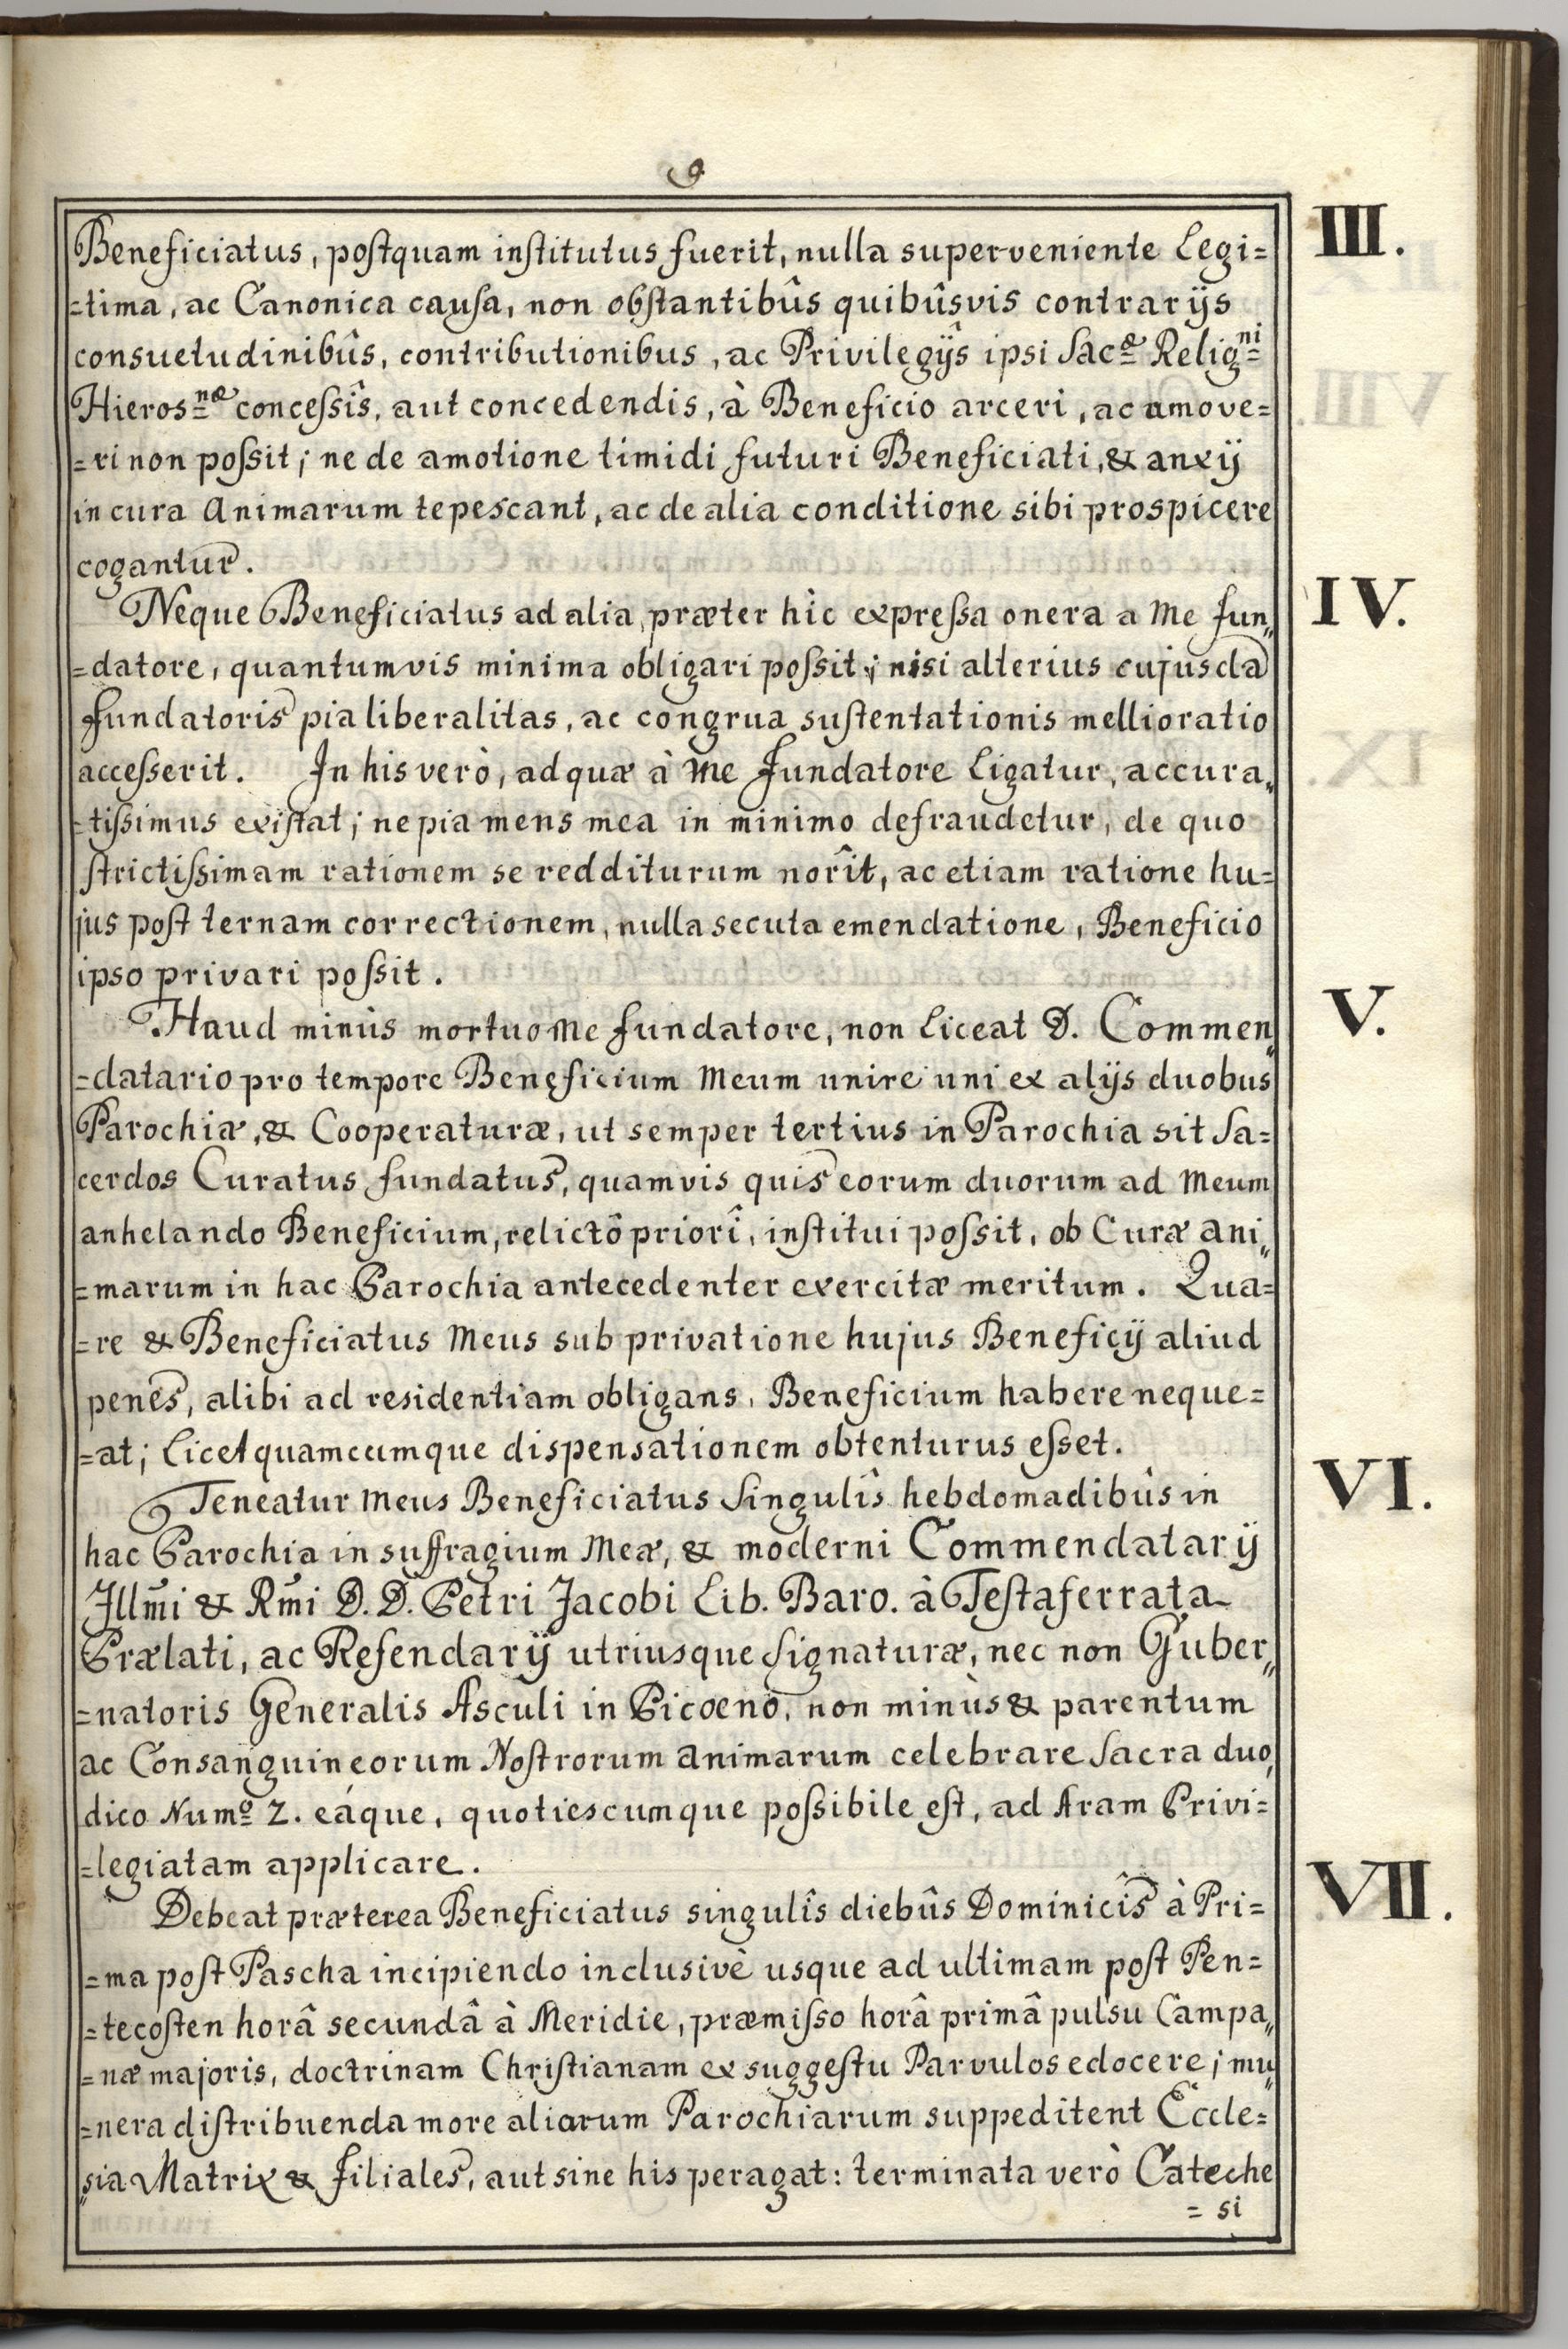 9
III.
Beneficiatus, postquam institutus fuerit, nulla superveniente Legi=
=tima, ac Canonica causa, non obstantibûs quibûsvis contrarÿs
consuetudinibûs, contributionibus, ac Privilegÿs ipsi Sacæ Religni
Hierosnæ concessîs, aut concedendis, à Beneficio arceri, ac amove=
=ri non possit; ne de amotione timidi futuri Beneficiati, & anxÿ
in cura Animarum tepescant, ac de alia conditione sibi prospicere
cogantur.
IV.
Neque Beneficiatus ad alia, præter hìc expressa onera a Me fun„
=datore, quantumvis minima obligari possit; nisi alterius cujusda
fundatoris pia liberalitas, ac congrua sustentationis mellioratio
accesserit. In his verò, ad quæ à Me Fundatore Ligatur, accura„
=tissimus existat; ne pia mens mea in minimo defraudetur, de quo
strictissimam rationem se redditurum norît, ac etiam ratione hu=
jus post ternam correctionem, nulla secuta emendatione, Beneficio
ipso privari possit.
V.
Haud minùs mortuo Me fundatore, non Liceat D. Commen„
=datario pro tempore Beneficium Meum unire uni ex alÿs duobus
Parochiæ, & Cooperaturæ, ut semper tertius in Parochia sit Sa=
cerdos Curatus fundatus, quamvis quis eorum duorum ad Meum
anhelando Beneficium, relictô priorî, institui possit, ob Curæ Ani„
=marum in hac Parochia antecedenter exercitæ meritum. Qua=
=re & Beneficiatus Meus sub privatione hujus Beneficÿ aliud
penes, alibi ad residentiam obligans, Beneficium habere neque=
=at; Licet quamcumque dispensationem obtenturus esset.
VI.
Teneatur Meus Beneficiatus Singulîs hebdomadibûs in
hac Parochia in suffragium Meæ, & moderni Commendatarÿ
Illm̃i & Rm̃i D. D. Petri Jacobi Lib. Baro. à Testaferrata
Prælati, ac Refendarÿ utriusque Signaturæ, nec non Guber„
=natoris Generalis Asculi in Picoeno, non minùs & parentum
ac Consanguineorum Nostrorum Animarum celebrare Sacra duo,
dico Numº 2. eáque, quotiescumque possibile est, ad Aram Privi=
=legiatam applicare.
VII.
Debeat præterea Beneficiatus singulîs diebûs Dominicîs à Pri=
=ma post Pascha incipiendo inclusivè usque ad ultimam post Pen=
=tecosten horâ secundâ à Meridie, præmisso horâ primâ pulsu Campa„
=næ majoris, doctrinam Christianam ex suggestu Parvulos edocere; mu„
=nera distribuenda more aliarum Parochiarum suppeditent Eccle=
„sia Matrix & Filiales, aut sine his peragat: terminata verò Cateche
= si